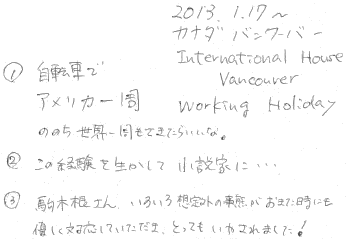 2013. 1.17〜
カナダ バンクーバー
International House
Vancouver
Working Holiday
① 自転車で
アメリカ一周
ののち世界一周もできたらいいな。
② この経験を生かして 小説家に…
③ 駒木根さん、いろいろ想定外の事態がおきた時にも
優しく対応していただき、とってもいやされました!